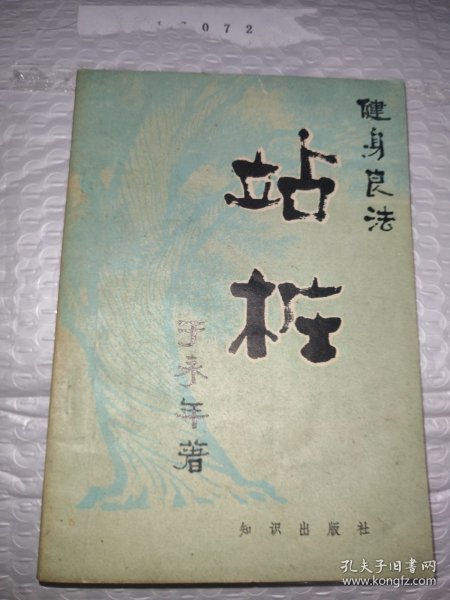 072
健身良法
站桩
于永年著
知识出版社
孔夫子旧书网
www.kongfz.com